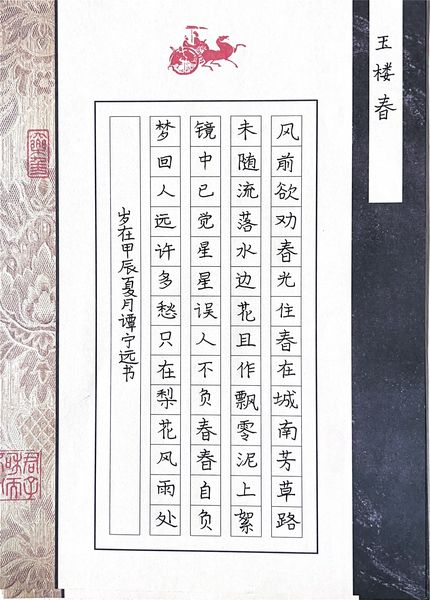 玉楼春
风前欲劝春光住春在城南芳草路
未随流落水边花且作飘零泥上絮
镜中已觉星星误人不负春春自负
梦回人远许多愁只在梨花风雨处
岁在甲辰夏月谭宁远书